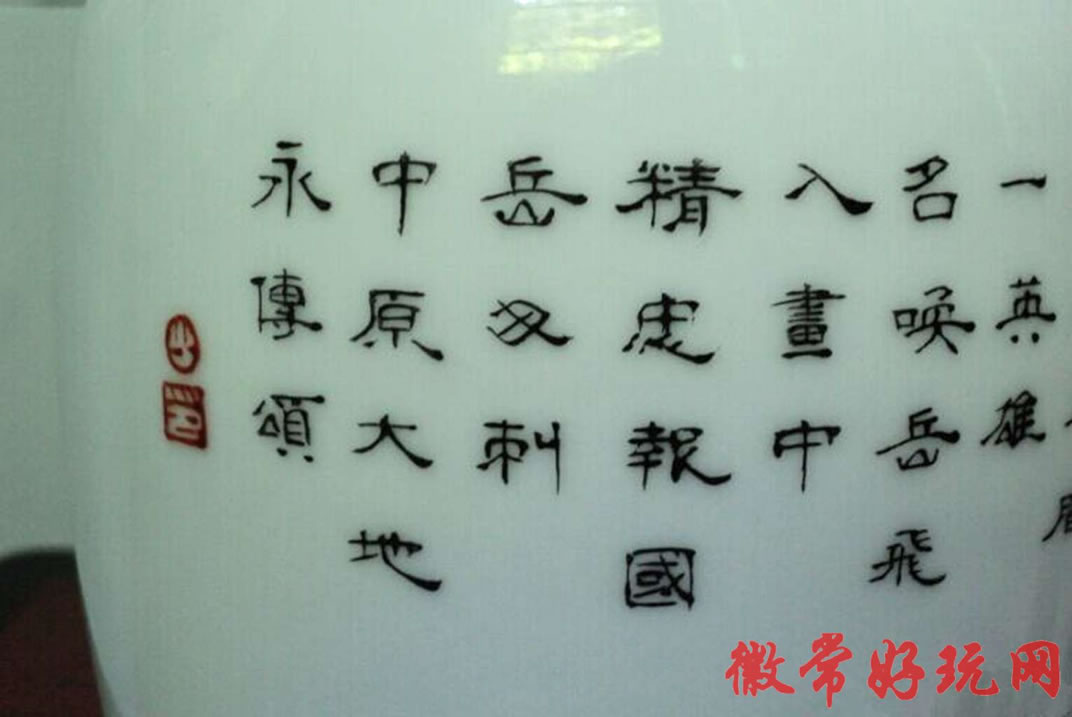 一英雄
名喚岳飛
入畫中
精忠報國
岳母刺
中原大地
永傳頌
徽常好玩网